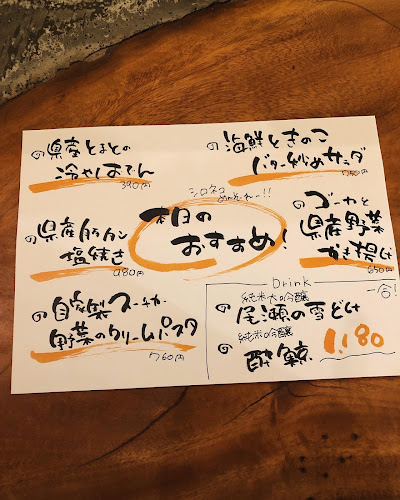 県産とまとの
冷やしおでん
390円
海鮮ときのこ
バター炒めサラダ
780円
シロネコ
めんそーれー!!
本日の
おすすめ!
県産牛タン
塩焼き
980円
ゴーヤと
県産野菜
かき揚げ
650円
自家製
野菜のクリームパスタ
760円
Drink
一合!
純米大吟醸
尾瀬の雪どけ
純米吟醸
酔鯨
1,180